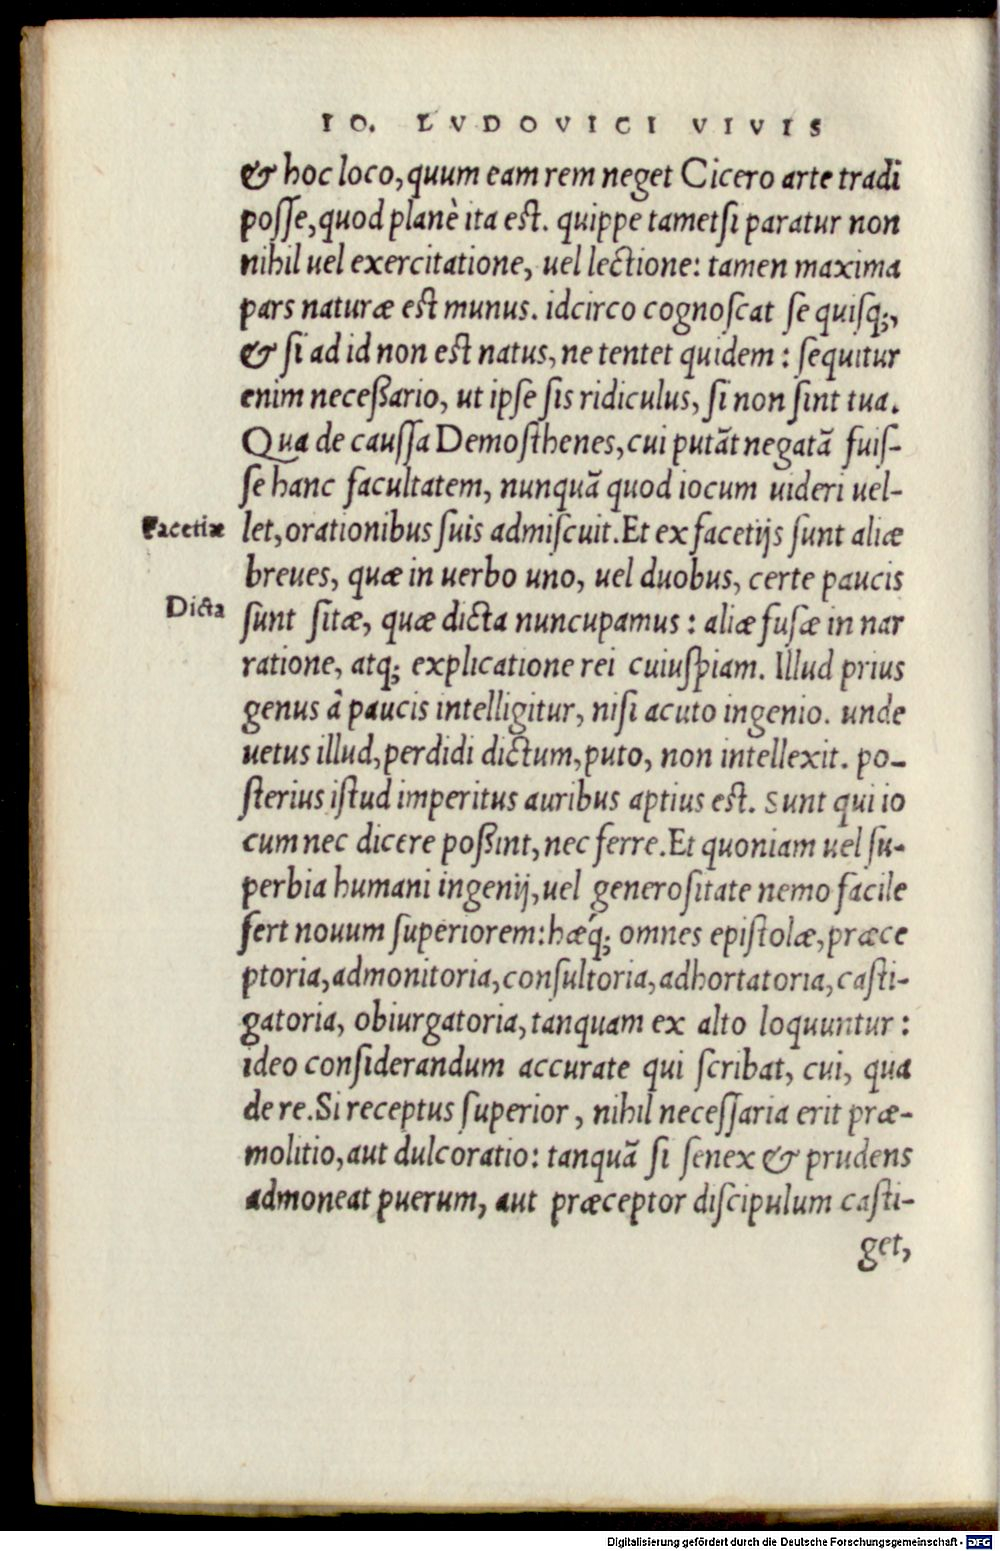 IO. LVDOVICI VIVIS
& hoc loco, quum eam rem neget Cicero arte tradi
posse, quod planè ita est. quippe tametsi paratur non
nihil uel exercitatione, uel lectione: tamen maxima
pars naturæ est munus. idcirco cognoscat se quisq;,
& si ad id non est natus, ne tentet quidem: sequitur
enim neceßario, ut ipse sis ridiculus, si non sint tua.
Qua de caussa Demosthenes, cui putãt negatã fuis-
se hanc facultatem, nunquã quod iocum uideri uel-
Facetiæ
let, orationibus suis admiscuit. Et ex facetijs sunt aliæ
breues, quæ in uerbo uno, uel duobus, certe paucis
Dicta
sunt sitæ, quæ dicta nuncupamus: aliæ fusæ in nar
ratione, atq; explicatione rei cuiuspiam. Illud prius
genus â paucis intelligitur, nisi acuto ingenio. unde
uetus illud, perdidi dictum, puto, non intellexit. po-
sterius istud imperitus auribus aptius est. Sunt qui io
cum nec dicere poßint, nec ferre. Et quoniam uel su-
perbia humani ingenij, uel generositate nemo facile
fert nouum superiorem: hæq́; omnes epistolæ, præce
ptoria, admonitoria, consultoria, adhortatoria, casti-
gatoria, obiurgatoria, tanquam ex alto loquuntur:
ideo considerandum accurate qui scribat, cui, qua
de re. Si receptus superior, nihil necessaria erit præ-
molitio, aut dulcoratio: tanquã si senex & prudens
admoneat puerum, aut præceptor discipulum casti-
get,
Digitalisierung gefördert durch die Deutsche Forschungsgemeinschaft - DFG